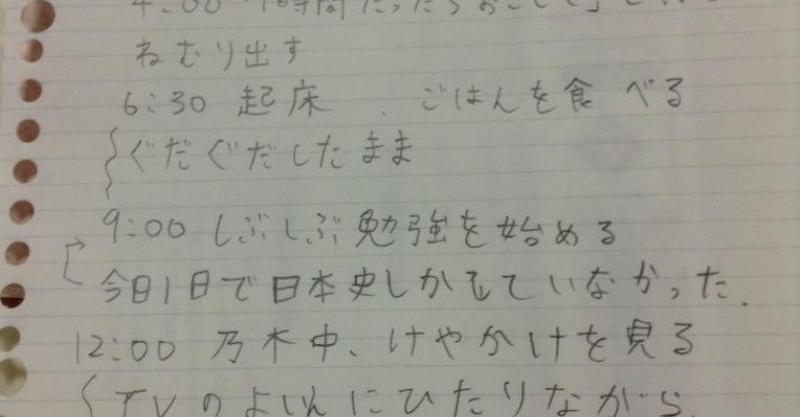 4:00 「1時間たったらおこして」と
ねむり出す
6:30 起床、ごはんを食べる
ぐだぐだしたまま
9:00 しぶしぶ勉強を始める
今日1日で日本史しかしていなかった.
12:00 乃木中、けやかけを見る
TVのよいんにひたりながら